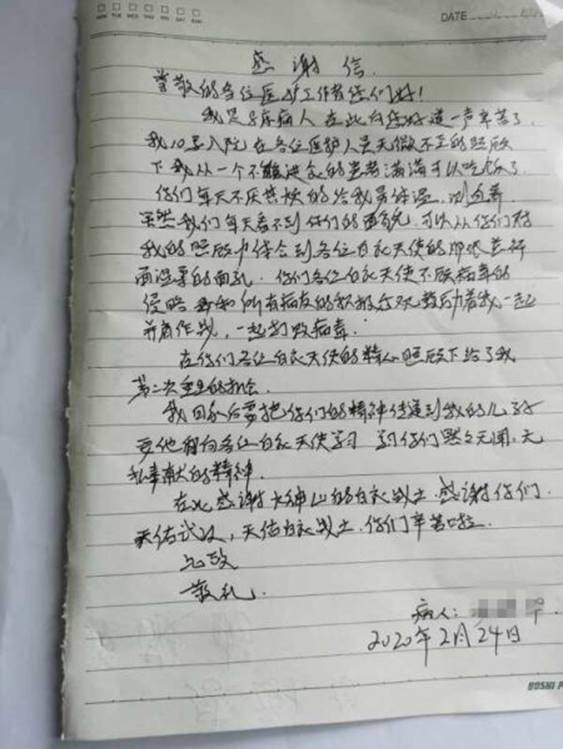 MON TUE WED THU FRI SAT SUN
DATE
感谢信
尊敬的各位医护工作者你们好!
我是8床病人 在此向你们道一声辛苦了
我10号入院 在各位医护人员无微不至的照顾
下 我从一个不能进食的患者满满可以吃饭了
你们每天不厌其烦的给我量体温,测血氧
虽然我们每天看不到你们的面貌,可以从你们对
我的照顾中体会到各位白衣天使的
面温柔的面孔.你们各位白衣天使不顾病毒的
侵略 我和所有病友的积极乐观鼓励着我一起
并肩作战,一起打败病毒.
在你们各位白衣天使的精心照顾下给了我
第二次重生的机会.
我回家后要把你们的精神传递到我的儿子
要他们向各位白衣天使学习 学习你们默默无闻,无
私奉献的精神.
在此感谢火神山的白衣战士 感谢你们.
天佑武汉,天佑白衣战士.你们辛苦啦.
此致
敬礼.
病人:
2020年2月24日
BOSHI